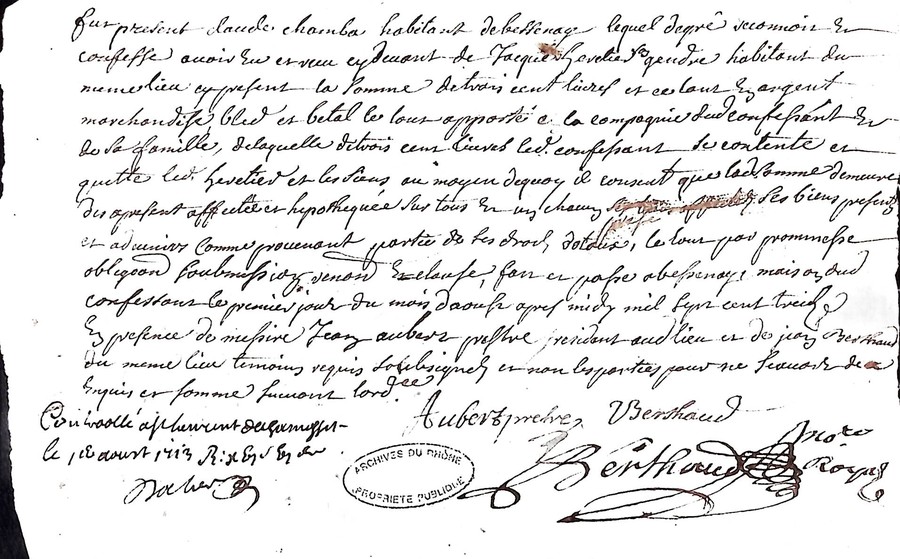 fut present claude chamba habitant de bessenay lequel de gré reconnoit et
confesse avoir eu et receu cy devant de Jacque hevetier son gendre habitant du
meme lieu cy present la somme de trois cent livres et ce tant en argent
marchandise bled et betal le tout apporté a la compagnie dud confessant et
de sa famille, de laquelle de trois cent livres led. confessant se contente et
quitte led. hevetier et les siens au moyen de quoy il consent que lad somme demeure
des a present affectée et hypothequée sur tous et un chacun ses biens presents
et advenirs comme provenant partie de ses droits dotaux, le tout par prommesse
obligaon soubmission renonon et clause, fait et passé a bessenay maison dud
confessant le premier jour du mois d'aoust apres midy mil sept cent treize
En presence de messire Jean aubert prestre residant aud lieu et de jean Berthaud
du meme lieu temoins requis soubsignes et non les parties pour ne scavoir de ce
enquis et sommé suivant lord.ce
Aubert pretre Berthaud
Controollé a st laurent de chamousset
le 1er aoust 1713 R
Berthaud no.re Royal
ARCHIVES DU RHÔNE
PROPRIETE PUBLIQUE